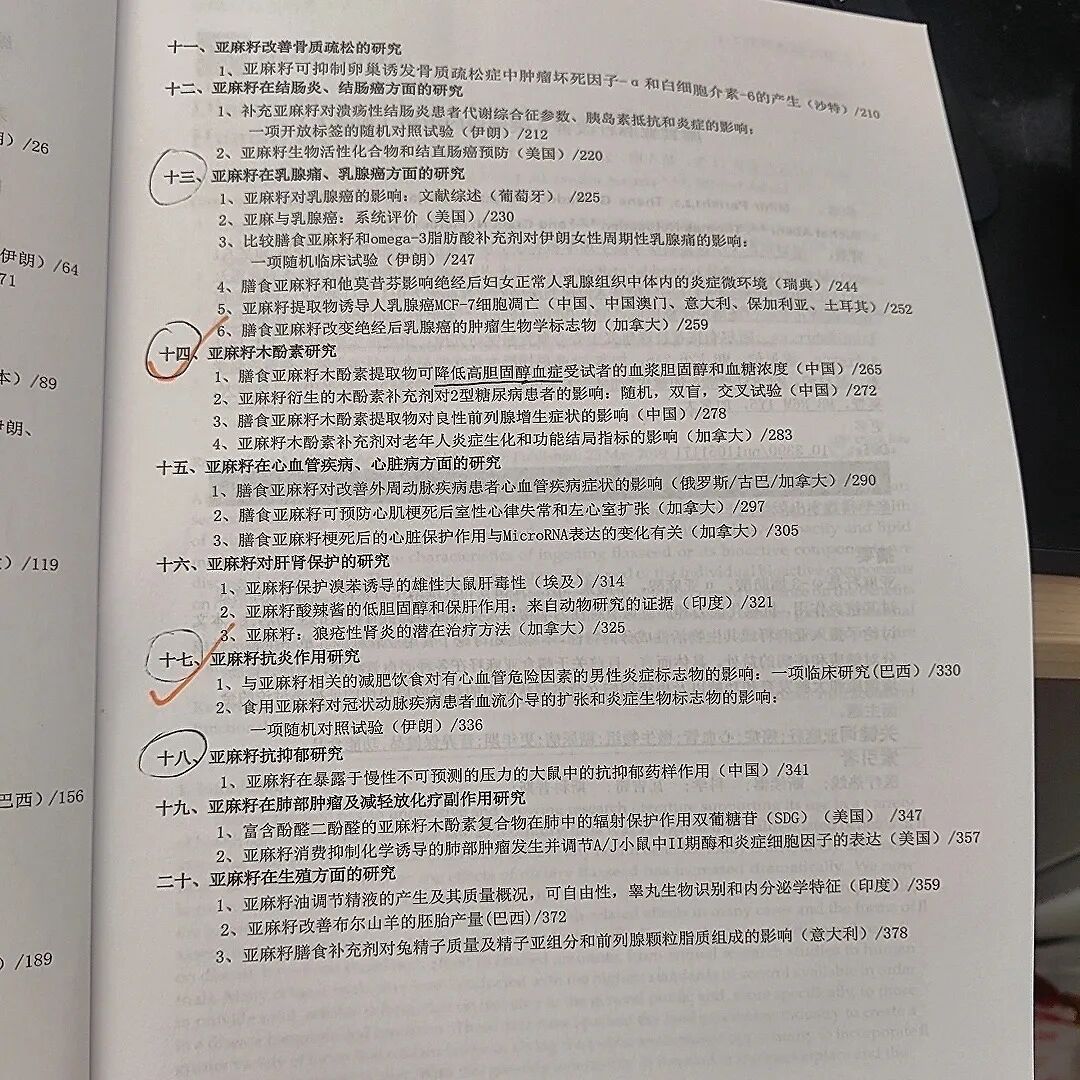 十一、亚麻籽改善骨质疏松的研究
1、亚麻籽可抑制卵巢诱发骨质疏松症中肿瘤坏死因子-α和白细胞介素-6的产生（沙特）/210
十二、亚麻籽在结肠炎、结肠癌方面的研究
1、补充亚麻籽对溃疡性结肠炎患者代谢综合征参数、胰岛素抵抗和炎症的影响：
一项开放标签的随机对照试验（伊朗）/212
2、亚麻籽生物活性化合物和结直肠癌预防（美国）/220
十三、亚麻籽在乳腺痛、乳腺癌方面的研究
1、亚麻籽对乳腺癌的影响：文献综述（葡萄牙）/225
2、亚麻与乳腺癌：系统评价（美国）/230
3、比较膳食亚麻籽和omega-3脂肪酸补充剂对伊朗女性周期性乳腺痛的影响：
一项随机临床试验（伊朗）/247
4、膳食亚麻籽和他莫昔芬影响绝经后妇女正常人乳腺组织中体内的炎症微环境（瑞典）/244
5、亚麻籽提取物诱导人乳腺癌MCF-7细胞凋亡（中国、中国澳门、意大利、保加利亚、土耳其）/252
6、膳食亚麻籽改变绝经后乳腺癌的肿瘤生物学标志物（加拿大）/259
十四、亚麻籽木酚素研究
1、膳食亚麻籽木酚素提取物可降低高胆固醇血症受试者的血浆胆固醇和血糖浓度（中国）/265
2、亚麻籽衍生的木酚素补充剂对2型糖尿病患者的影响：随机，双盲，交叉试验（中国）/272
3、膳食亚麻籽木酚素提取物对良性前列腺增生症状的影响（中国）/278
4、亚麻籽木酚素补充剂对老年人炎症生化和功能结局指标的影响（加拿大）/283
十五、亚麻籽在心血管疾病、心脏病方面的研究
1、膳食亚麻籽对改善外周动脉疾病患者心血管疾病症状的影响（俄罗斯/古巴/加拿大）/290
2、膳食亚麻籽可预防心肌梗死后室性心律失常和左心室扩张（加拿大）/297
3、膳食亚麻籽梗死后的心脏保护作用与MicroRNA表达的变化有关（加拿大）/305
十六、亚麻籽对肝肾保护的研究
1、亚麻籽保护溴苯诱导的雄性大鼠肝毒性（埃及）/314
2、亚麻籽酸辣酱的低胆固醇和保肝作用：来自动物研究的证据（印度）/321
3、亚麻籽：狼疮性肾炎的潜在治疗方法（加拿大）/325
十七、亚麻籽抗炎作用研究
1、与亚麻籽相关的减肥饮食对有心血管危险因素的男性炎症标志物的影响：一项临床研究(巴西）/330
2、食用亚麻籽对冠状动脉疾病患者血流介导的扩张和炎症生物标志物的影响：
一项随机对照试验（伊朗）/336
十八、亚麻籽抗抑郁研究
1、亚麻籽在暴露于慢性不可预测的压力的大鼠中的抗抑郁药样作用（中国）/341
十九、亚麻籽在肺部肿瘤及减轻放化疗副作用研究
1、富含酚醛二酚醛的亚麻籽木酚素复合物在肺中的辐射保护作用双葡糖苷（SDG）（美国） /347
2、亚麻籽消费抑制化学诱导的肺部肿瘤发生并调节A/J小鼠中II期酶和炎症细胞因子的表达（美国）/357
二十、亚麻籽在生殖方面的研究
1、亚麻籽油调节精液的产生及其质量概况，可自由性，睾丸生物识别和内分泌学特征（印度）/359
2、亚麻籽改善布尔山羊的胚胎产量(巴西)/372
3、亚麻籽膳食补充剂对兔精子质量及精子亚组分和前列腺颗粒脂质组成的影响（意大利）/378
）/26
伊朗）/64
71
本）/89
伊朗、
）/119
巴西）/156
）/189